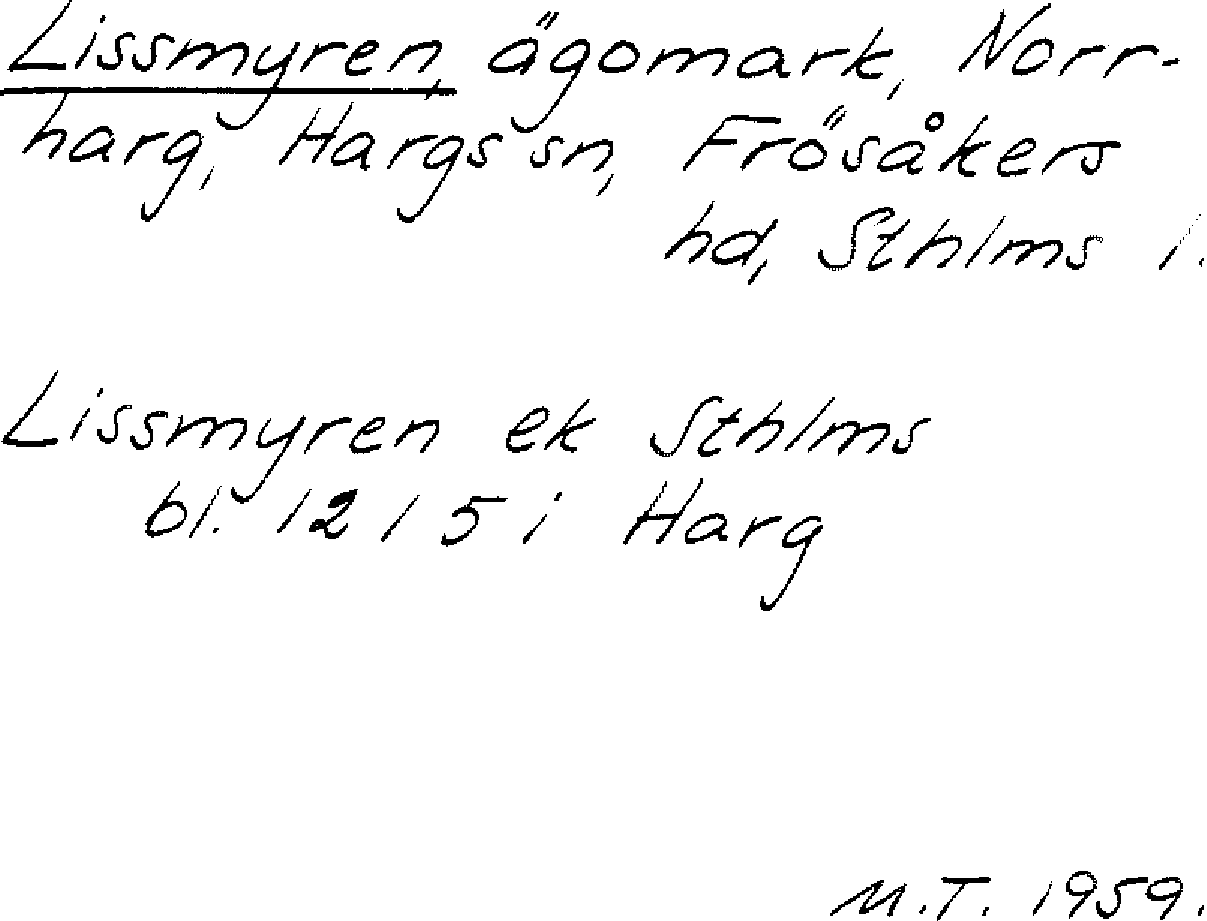 Lissmyren, ägomark, Norr-
harg, Hargs sn, Frösåkers
hd, Sthlms l.
Lissmyren ek Sthlms
bl. 12 / 5 i Harg
M.T. 1959.